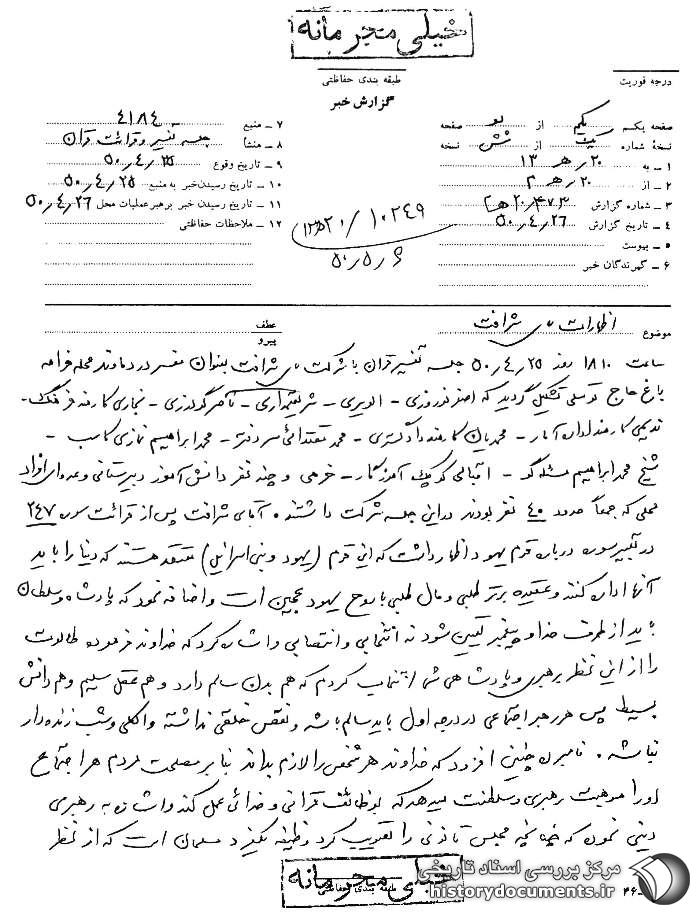 خیلی محرمانه
طبقه بندی حفاظتی
درجه فوریت
گزارش خبر
صفحه یکم از دو صفحه
نسخهٔ شماره یک از شش نسخه
۱ ـ به ۲۰ / هـ ۱۳
۲ ـ از ۲۰ / هـ ۲
۳ ـ شماره گزارش ۲۰۴۷۳ / هـ ۲
۴ ـ تاریخ گزارش ۵۰٫۴٫۲۶
۵ ـ پیوست
۶ ـ گیرندگان خبر
۷ ـ منبع ۴۱۸۴
۸ ـ منشأ جلسه تفسیر و قرائت قرآن
۹ ـ تاریخ وقوع ۵۰٫۴٫۲۵
۱۰ ـ تاریخ رسیدن خبر به منبع ۵۰٫۴٫۲۵
۱۱ ـ تاریخ رسیدن خبر برهبر عملیات محل ۵۰٫۴٫۲۶
۱۲ ـ ملاحظات حفاظتی
۱۰۲۴۹ /
۵۰٫۵٫۶
موضوع اظهارات شرافت
عطف
پیرو
ساعت ۱۸۱۰ روز ۵۰٫۴٫۲۵ جلسه تفسیر قرآن با شرکت شرافت بعنوان مفسر در دماوند محله فرامه
باغ حاج توسلی تشکیل گردید که اصغر نوروزی ـ الویری ـ شریعتمداری ـ ناصر گودرزی ـ نجاری کارمند فرهنگ ـ
ندیمی کارمند اداره آمار ـ محمدیان کارمند دادگستری ـ محمد مقتدائی سردفتر ـ محمد ابراهیم نمازی کاسب ـ
شیخ محمد ابراهیم مسئله گو ـ اقبالی کوچک آموزگار ـ خرمی و چند نفر دانش آموز دبیرستانی و عده‌ای افراد
محلی که جمعاً حدود ۴۰ نفر بودند در این جلسه شرکت داشتند . آقای شرافت پس از قرائت سوره ۲۴۷
در تعبیر سوره درباره قوم یهود اظهار داشت که این قوم (یهود و بنی اسرائیل) معتقد هستند که دنیا را باید
آنها اداره کنند و عقیده برتر طلبی و مال طلبی با روح یهود عجین است و اضافه نمود که پادشاه و سلطان
باید از طرف خدا و پیغمبر تعیین شود نه انتخابی و انتصابی و اشاره کرد که خداوند فرموده طالوت
را از این نظر برهبری و پادشاهی شما انتخاب کردم که هم بدن سالم دارد و هم عقل سلیم و هم دانش
بسیط پس هر رهبر اجتماعی در درجه اول باید سالم باشد و نقص خلقی نداشته و الکلی و شب زنده دار
نباشد . نامبرده چنین افزود که خداوند هر شخص را لازم بداند بنا بر مصلحت مردم هر اجتماع
اورا موهبت رهبری و سلطنت میدهد که بوظائف قرآنی و خدائی عمل کند و اشاره به رهبری
دینی نمود که چنانچه مجلس قانونی را تصویب کرد وظیفه یکفرد مسلمان است که از نظر
خیلی محرمانه
طبقه بندی حفاظتی
مرکز بررسی اسناد تاریخی
historydocuments.ir